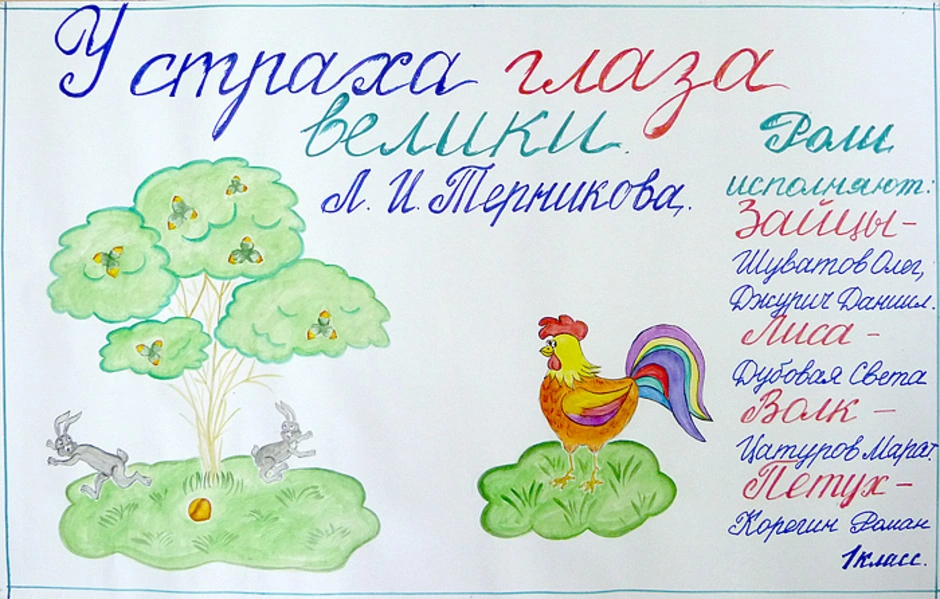 У страха глаза
велики.
Л. И. Терникова.
Роли
исполняют:
Зайцы-
Шуватов Олег,
Джурич Даниил.
Лиса -
Дубовая Света
Волк -
Цатуров Марат.
Петух-
Корегин Роман
1 класс.